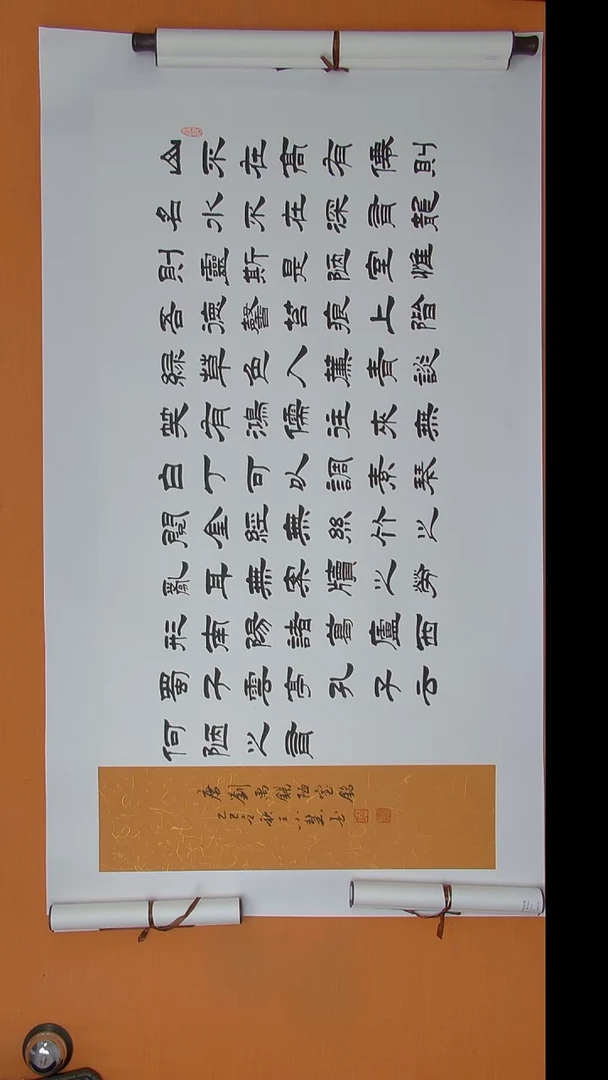 山不在高有僊則
名水不在深有龍
則靈斯是陋室惟
吾德馨苔痕上階
綠草色入簾青談
笑有鴻儒往來無
白丁可以調素琴
閱金經無絲竹之
亂耳無案牘之勞
形南陽諸葛廬西
蜀子雲亭孔子云
何陋之有
唐劉禹錫陋室銘
乙巳之秋